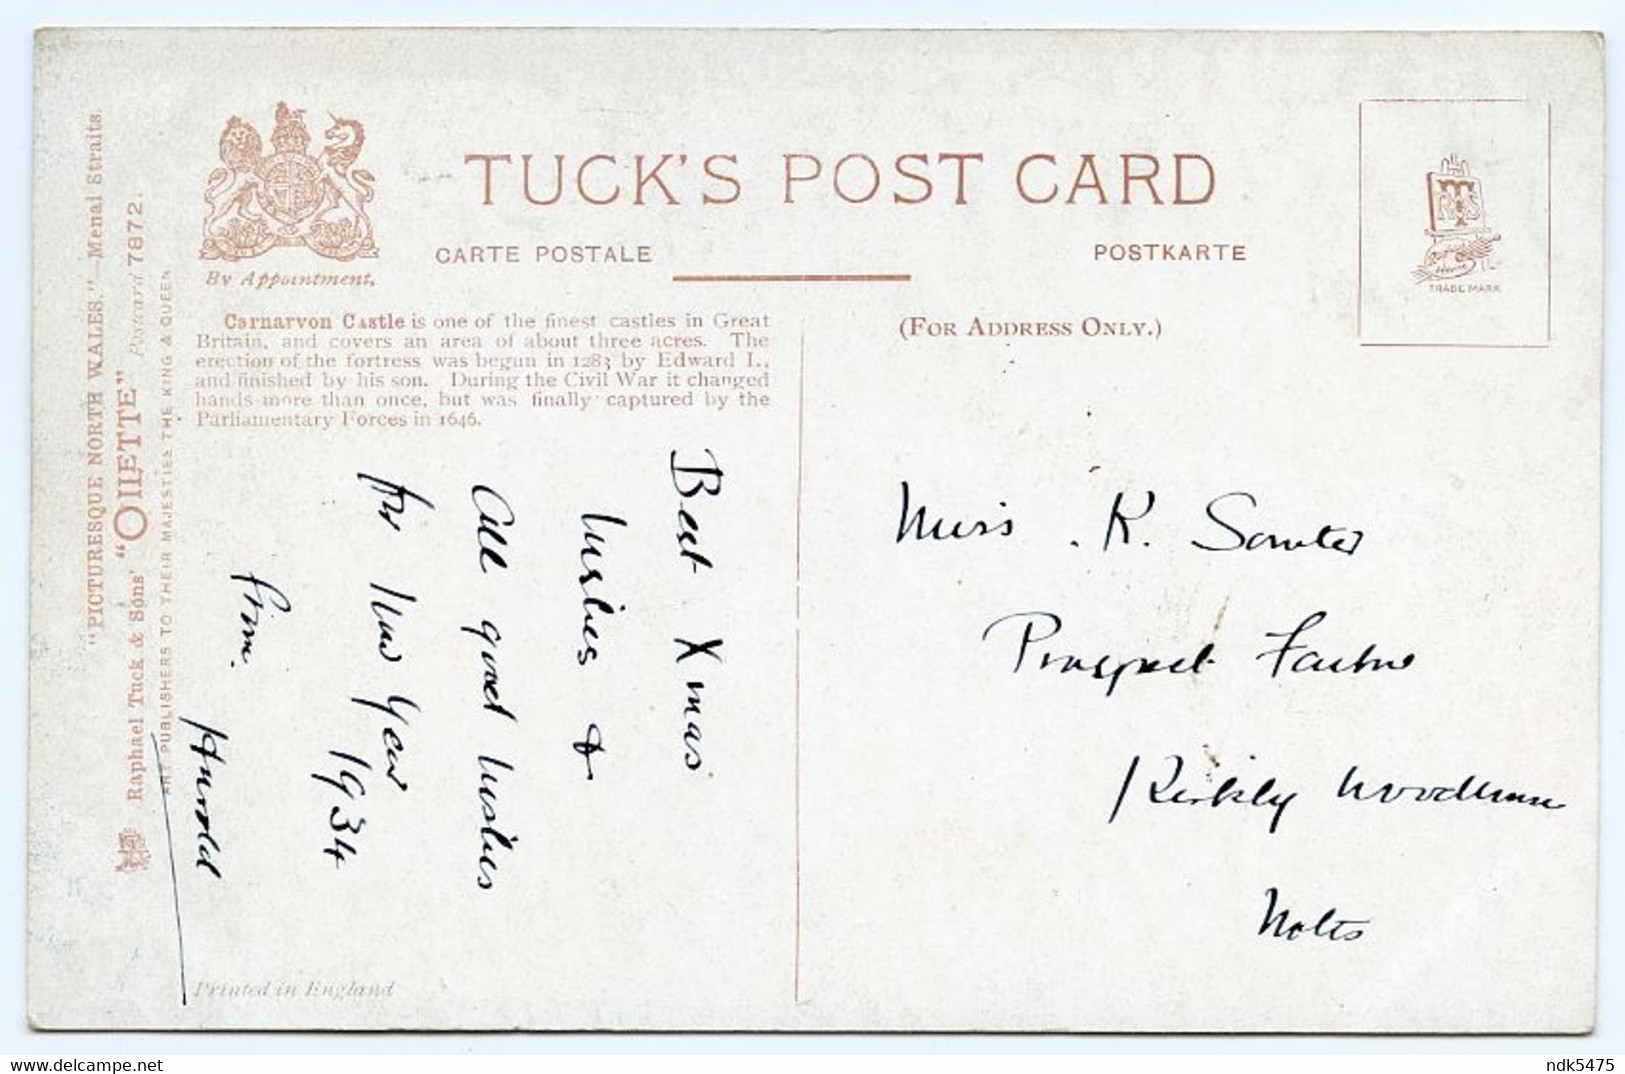 TUCK'S POST CARD
CARTE POSTALE
POSTKARTE
By Appointment.
TRADE MARK
(FOR ADDRESS ONLY.)
Carnarvon Castle is one of the finest castles in Great
Britain, and covers an area of about three acres. The
erection of the fortress was begun in 1283 by Edward I.,
and finished by his son. During the Civil War it changed
hands more than once, but was finally captured by the
Parliamentary Forces in 1646.
"PICTURESQUE NORTH WALES."—Menai Straits.
Raphael Tuck & Sons' "OILETTE" Postcard 7872.
ART PUBLISHERS TO THEIR MAJESTIES THE KING & QUEEN
Best Xmas
wishes &
All good wishes
for New Year
1934
from
Harold
Miss K.
Prospect
Kirkby Woodhouse
Notts
Printed in England
ndk5475